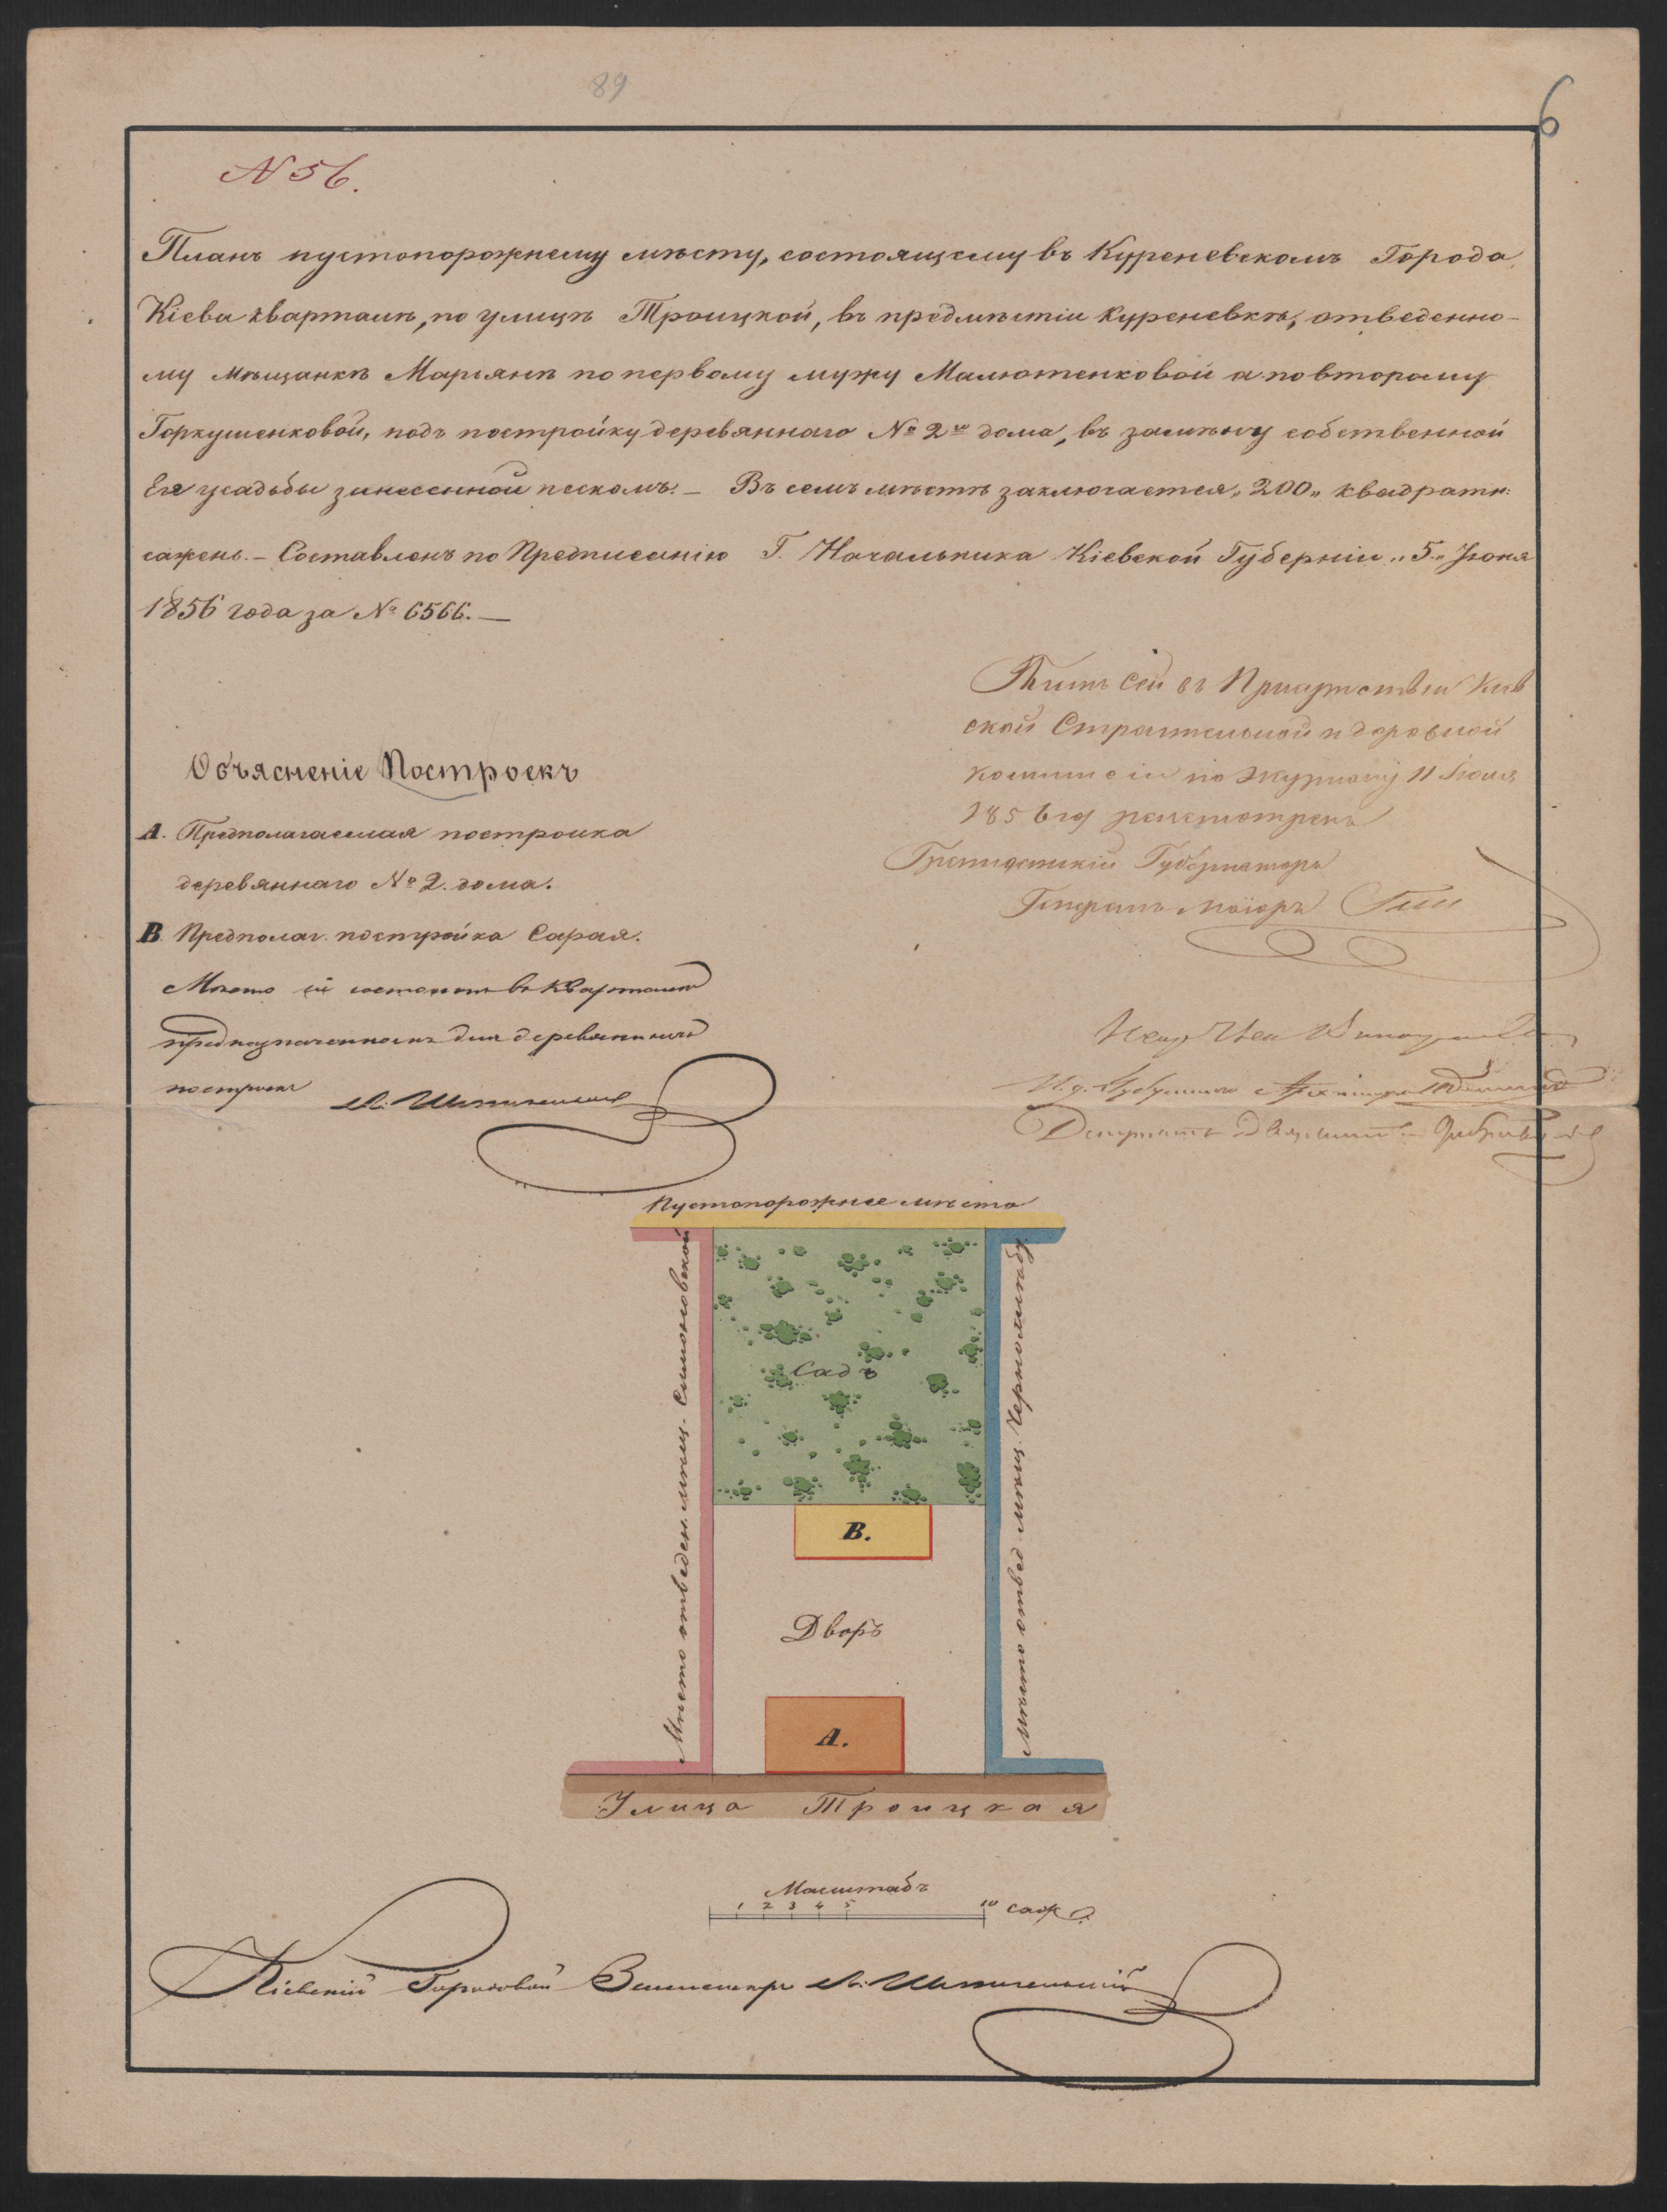 89
6
N 56.
Планъ пустопорожнему мѣсту, состоящему въ Куреневскомъ Города
Кіева кварталѣ, по улицѣ Троицкой, въ предмѣстіи Куреневкѣ, отведенно-
му мѣщанкѣ Марьянѣ по первому мужу Малютенковой а по второму
Горкушенковой, подъ постройку деревяннаго № 2го дома, въ замѣну собственной
Ея усадьбы занесенной пескомъ. — Въ семъ мѣстѣ заключается „200„ квадратн:
сажень. — Составленъ по Предписанію Г. Начальника Кіевской Губерніи „5„ Іюня
1856 года за № 6566. —
сей въ Присутствіи Кіев
ской Строительной и дорожной
Коммисіи по Журналу 11 Іюля
1856 год разсмотренъ
Губернаторъ
Генералъ Маіоръ
Объясненіе Построекъ
А. Предполагаемая постройка
деревяннаго № 2. дома.
В. Предполаг. постройка Сарая.
Мѣсто сіе состоитъ въ Кварталѣ
предназначенномъ для деревянныхъ
построекъ
И. д. Губернскаго Архитектора
Депутатъ Дворянства
Пустопорожнее мѣсто
Мѣсто отведен. мѣщ. Симоновской
Садъ
Мѣсто отвед. мѣщ.
В.
Дворъ
А.
Улица Троицкая
Масштабъ
1 2 3 4 5 10 саж.
Кіевскій Городовой Землемѣръ